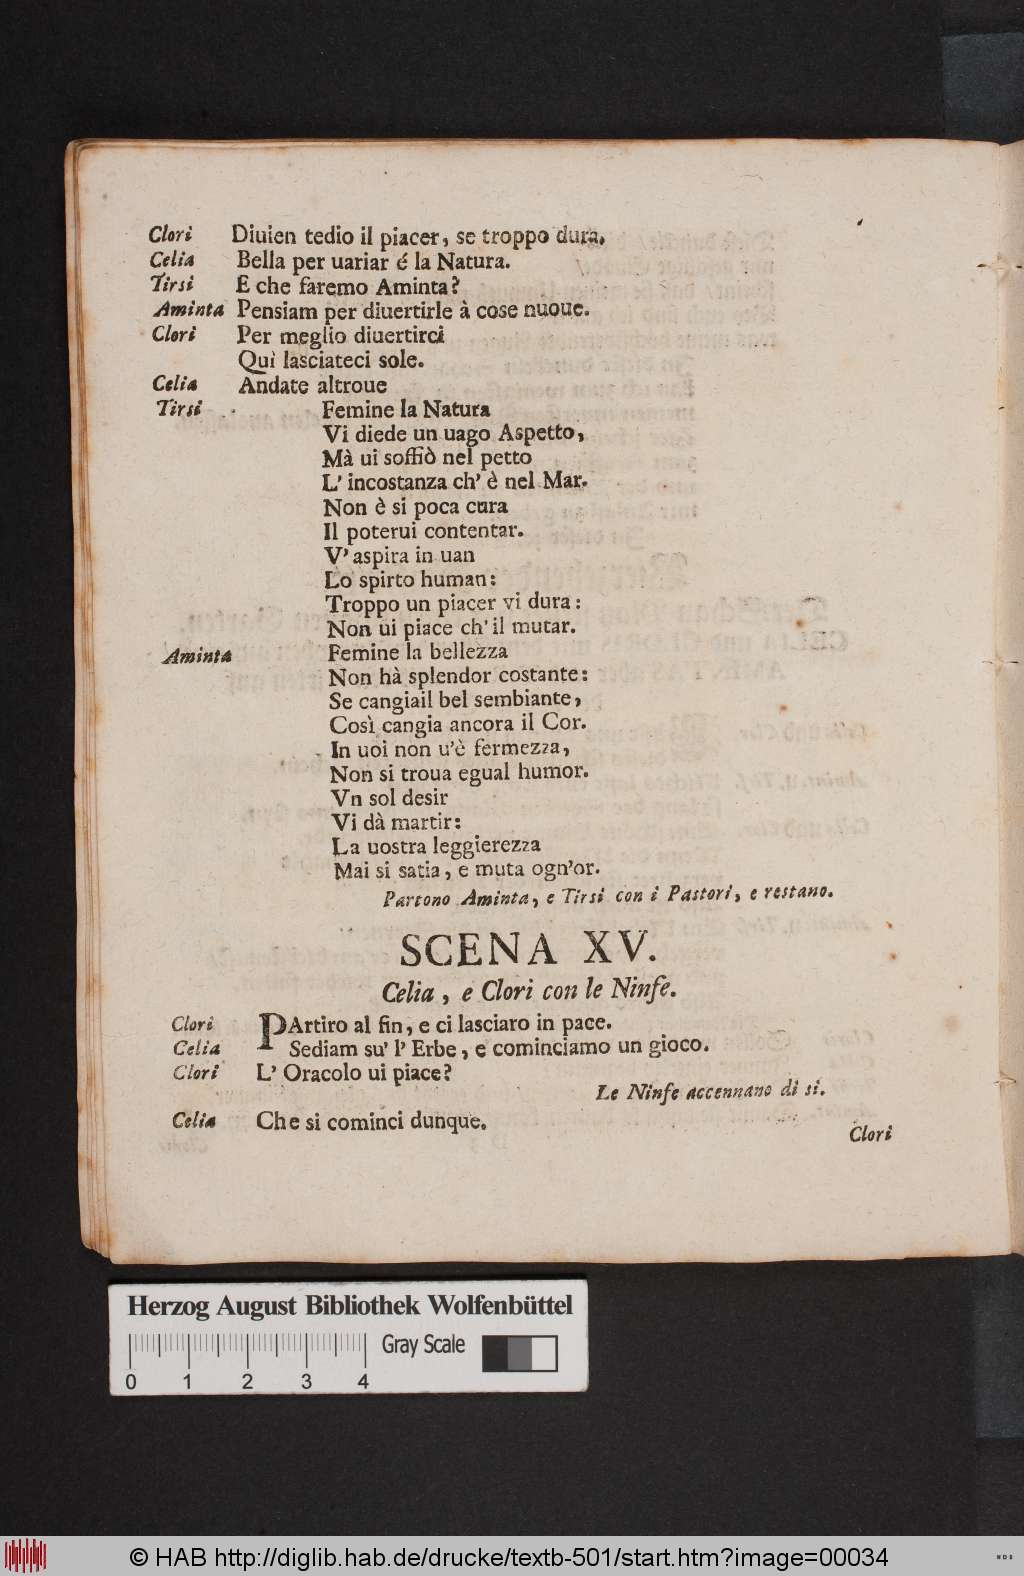 Clori Diuien tedio il piacer, se troppo dura.
Celia Bella per uariar é la Natura.
Tirsi E che faremo Aminta?
Aminta Pensiam per diuertirle à cose nuoue.
Clori Per meglio diuertirci
Quì lasciateci sole.
Celia Andate altroue
Tirsi Femine la Natura
Vi diede un uago Aspetto,
Mà ui soffiò nel petto
L' incostanza ch' è nel Mar.
Non è si poca cura
Il poterui contentar.
V' aspira in uan
Lo spirto human:
Troppo un piacer vi dura:
Non ui piace ch' il mutar.
Aminta Femine la bellezza
Non hà splendor costante:
Se cangiail bel sembiante,
Così cangia ancora il Cor.
In uoi non u'è fermezza,
Non si troua egual humor.
Vn sol desir
Vi dà martir:
La uostra leggierezza
Mai si satia, e muta ogn'or.
Partono Aminta, e Tirsi con i Pastori, e restano.
SCENA XV.
Celia, e Clori con le Ninfe.
Clori PArtiro al fin, e ci lasciaro in pace.
Celia Sediam su' l' Erbe, e cominciamo un gioco.
Clori L' Oracolo ui piace?
Le Ninfe accennano di si.
Celia Che si cominci dunque.
Clori
Herzog August Bibliothek Wolfenbüttel
Gray Scale
0 1 2 3 4
© HAB http://diglib.hab.de/drucke/textb-501/start.htm?image=00034